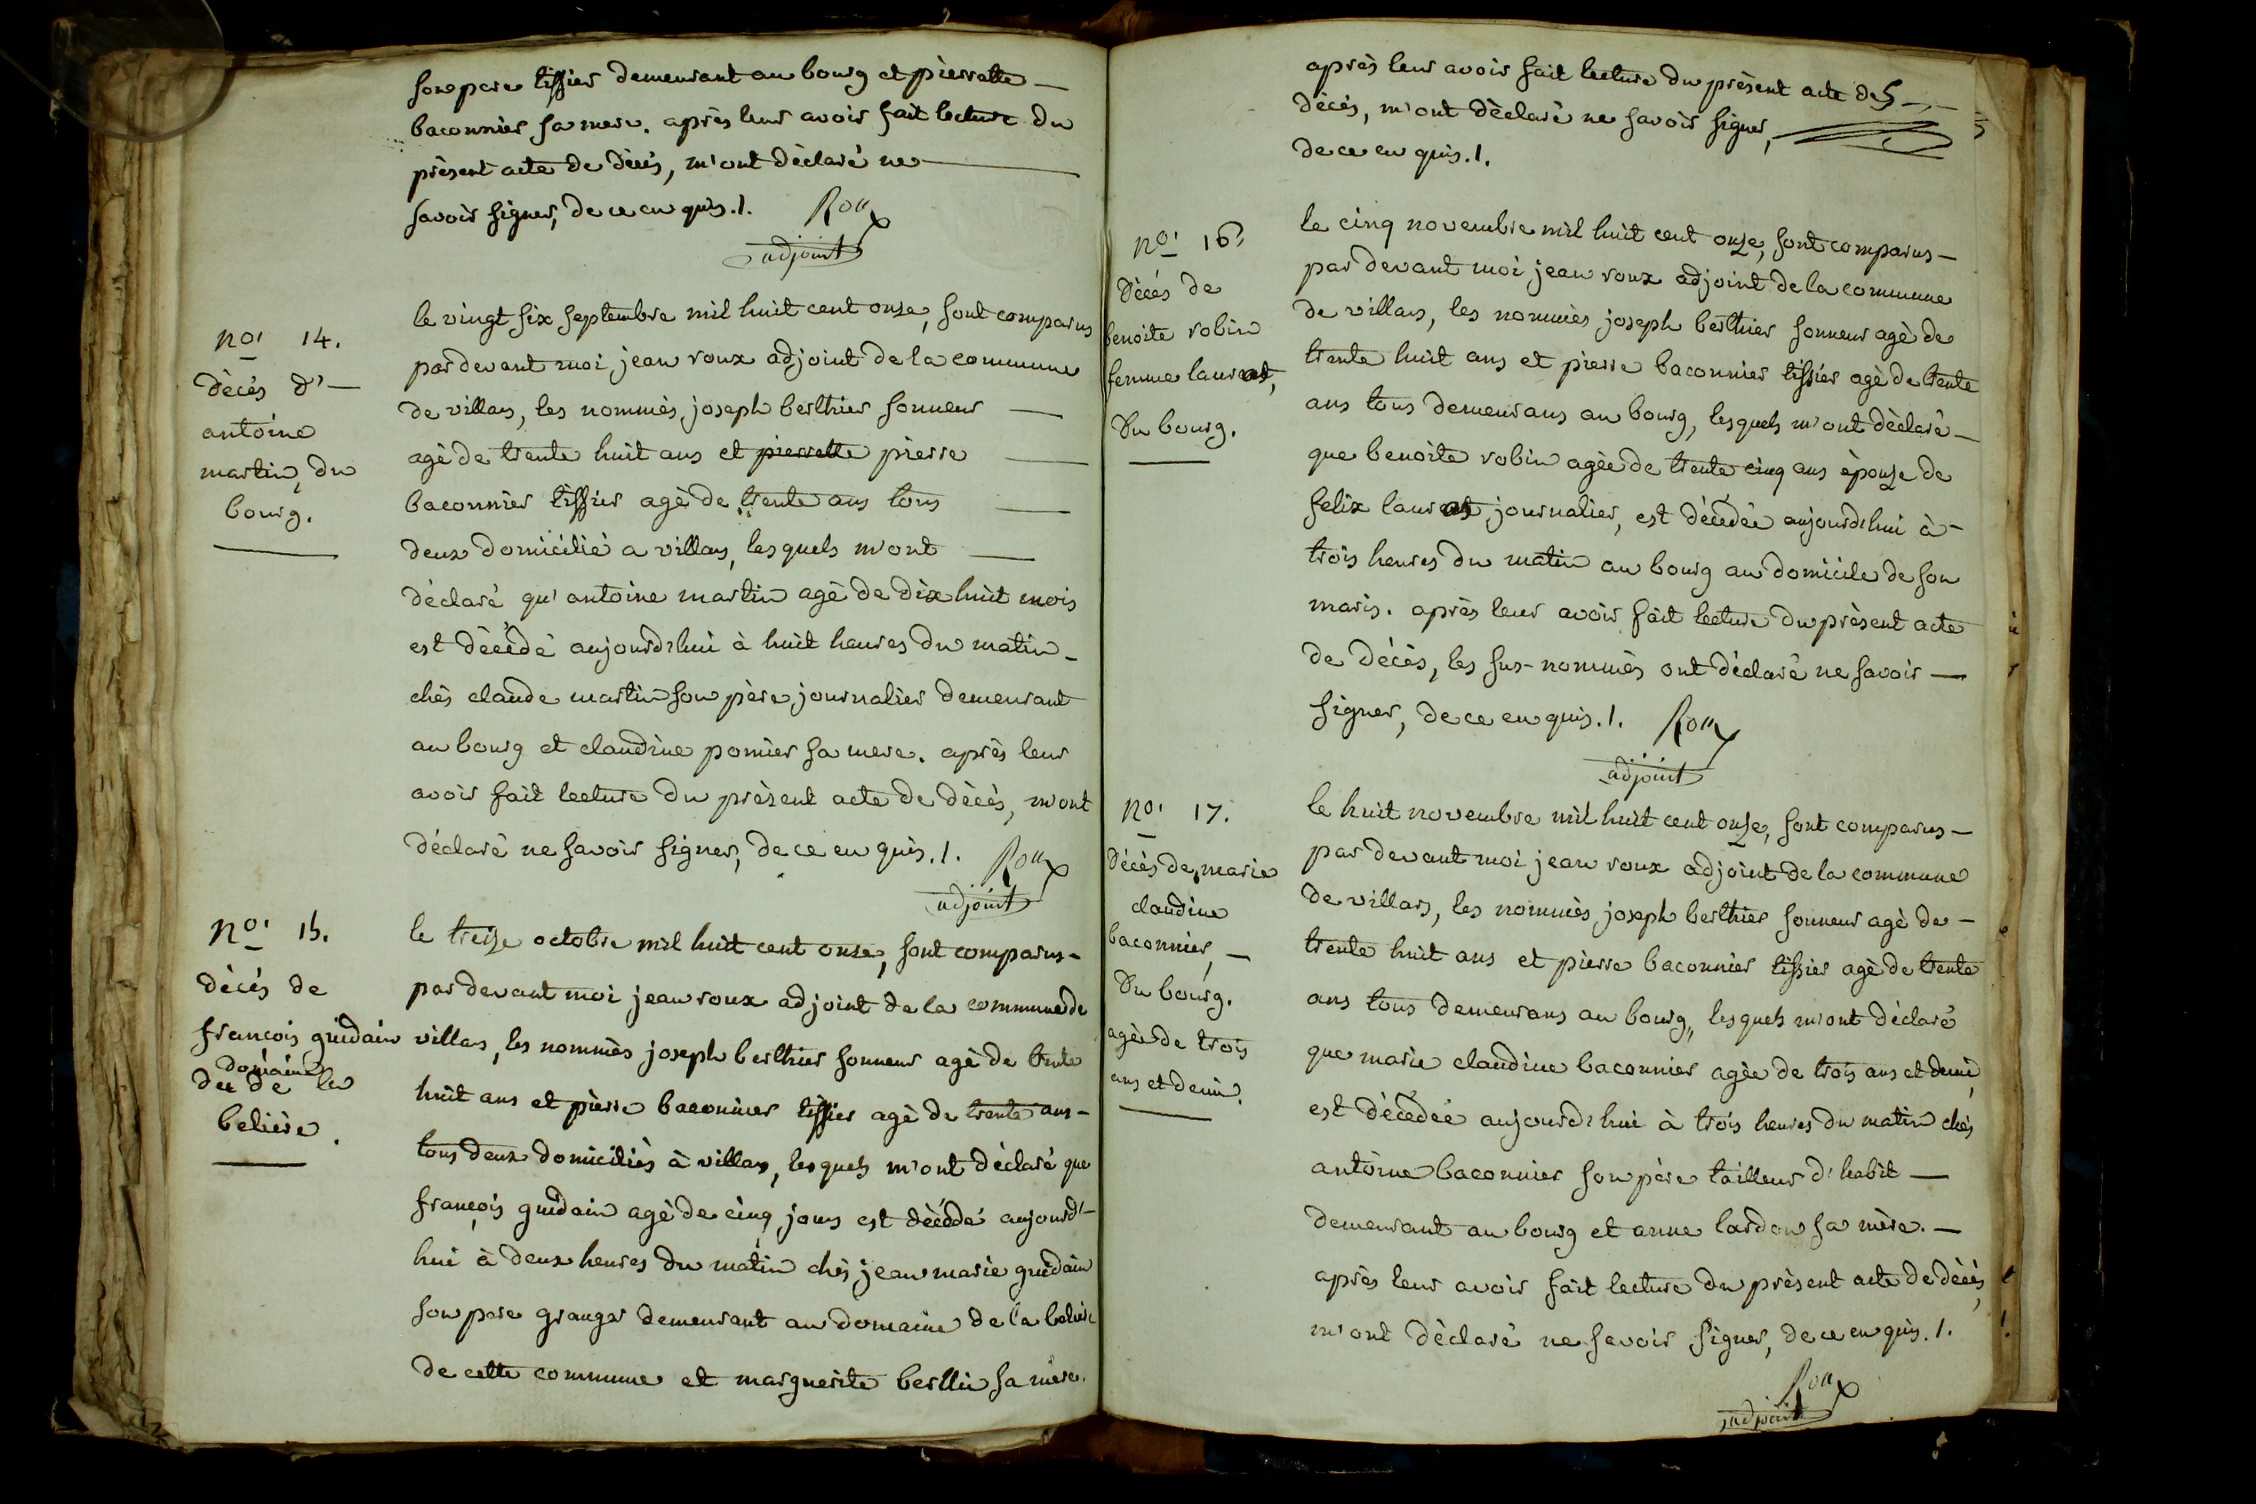 son pere tissier demeurant au bourg et pierrette —
baconnier sa mere. après leur avoir fait lecture du
présent acte de décés, m'ont déclaré ne —
savoir signer, de ce en quis. /.
Roux
adjoint
no. 14.
décés d'—
antoine
martin, du
bourg.
le vingt six septembre mil huit cent onze, sont comparus
par devant moi jean roux adjoint de la commune
de villars, les nommés joseph berthier sonneur —
agé de trente huit ans et pierrette pierre —
baconnier tissier agé de trente ans tous —
deux domicilié a villars, lesquels m'ont —
déclaré qu'antoine martin agé de dix huit mois
est décédé aujourd'hui à huit heures du matin -
chés claude martin son père, journalier demeurant
au bourg et claudine pomier sa mere. après leur
avoir fait lecture du présent acte de décés, m'ont
déclaré ne savoir signer, de ce en quis. /.
Roux
adjoint
no. 15.
décés de
francois guidain
domaine
du de la
beliere.
le treize octobre mil huit cent onze, sont comparus -
par devant moi jean roux adjoint de la commune de
villars, les nommés joseph berthier sonneur agé de trente
huit ans et pierre baconnier tissier agé de trente ans -
tous deux domiciliés à villars, lesquels m'ont déclaré que
françois guidain agé de cinq jours est décédé aujourd'-
hui à deux heures du matin chés jean marie guidain
son pere granger demeurant au domaine de la beliere
de cette commune et marguerite berlier sa mère.
après leur avoir fait lecture du présent acte de —
décés, m'ont déclaré ne savoir signer,
de ce en quis. /.
no. 16.
décés de
benoite robin
femme laurent,
du bourg.
le cinq novembre mil huit cent onze, sont comparus —
par devant moi jean roux adjoint de la commune
de villars, les nommés joseph berthier sonneur agé de
trente huit ans et pierre baconnier tissier agé de trente
ans tous demeurans au bourg, lesquels m'ont déclaré —
que benoite robin agée de trente cinq ans épouze de
felix laurent journalier, est décédée aujourd'hui à -
trois heures du matin au bourg au domicile de son
maris. après leur avoir fait lecture du présent acte
de décés, les sus-nommés ont déclaré ne savoir —
signer, de ce en quis. /.
Roux
adjoint
no. 17.
décés de marie
claudine
baconnier, —
du bourg.
agée de trois
ans et demi.
le huit novembre mil huit cent onze, sont comparus —
par devant moi jean roux adjoint de la commune
de villars, les nommés joseph berthier sonneur agé de -
trente huit ans et pierre baconnier tissier agé de trente
ans tous demeurans au bourg, lesquels m'ont déclaré
que marie claudine baconnier agée de trois ans et demi,
est décédée aujourd'hui à trois heures du matin chés
antoine baconnier son père tailleur d'habit —
demeurant au bourg et anne lardon sa mère. —
après leur avoir fait lecture du présent acte de décés,
m'ont déclaré ne savoir signer, de ce en quis. /.
Roux
adjoint